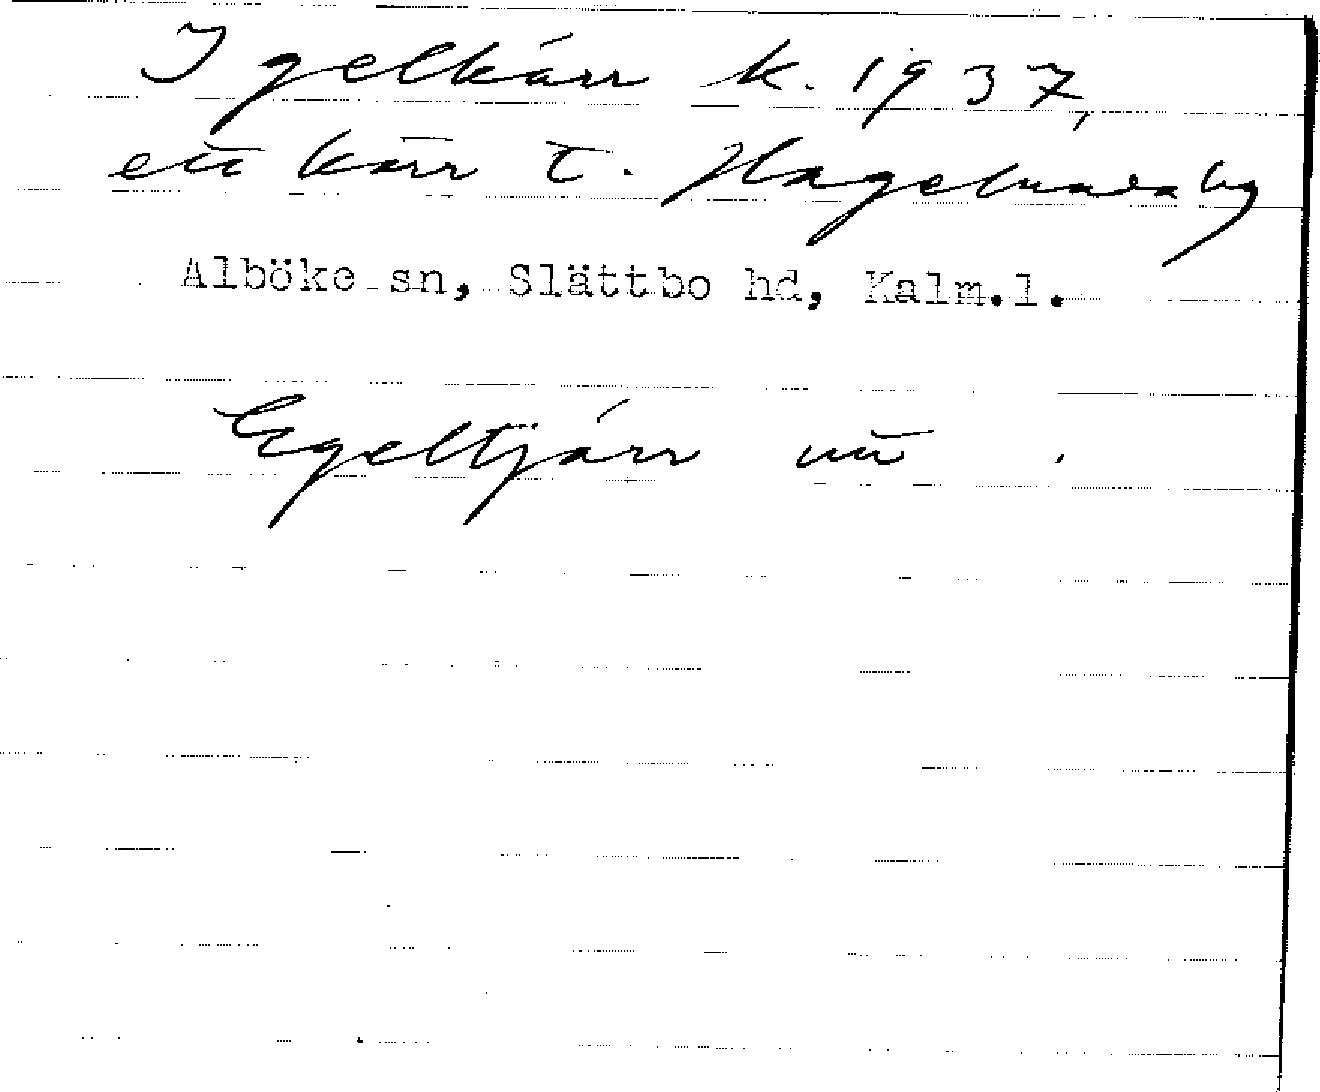 Igelkärr k. 1937,
ett kärr t. Hagelstadaby
Alböke sn, Slättbo hd, Kalm.l.
Egeltjärr uü